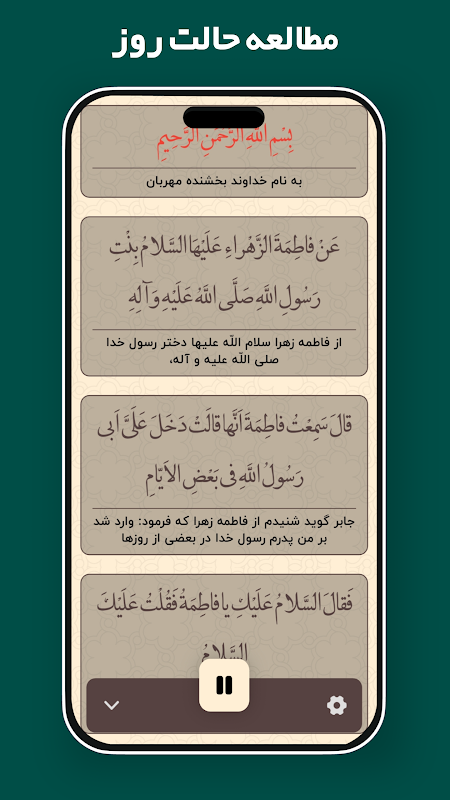 مطالعه حالت روز
بِسْمِ اللَّهِ الرَّحْمنِ الرَّحِيمِ
به نام خداوند بخشنده مهربان
عَنْ فاطِمَةَ الزَّهْراءِ عَلَيْهَا السَّلامُ بِنْتِ
رَسُولِ اللَّهِ صَلَّى اللَّهُ عَلَيْهِ وَ آلِهِ
از فاطمه زهرا سلام اللّه علیها دختر رسول خدا
صلی اللّه علیه و آله،
قالَ سَمِعْتُ فاطِمَةَ اَنَّها قالَتْ دَخَلَ عَلَىَّ اَبى
رَسُولُ اللَّهِ فى بَعْضِ الاَيّامِ
جابر گوید شنیدم از فاطمه زهرا که فرمود: وارد شد
بر من پدرم رسول خدا در بعضی از روزها
فَقالَ السَّلامُ عَلَيْكِ يا فاطِمَةُ فَقُلْتُ عَلَيْكَ
السَّلامُ